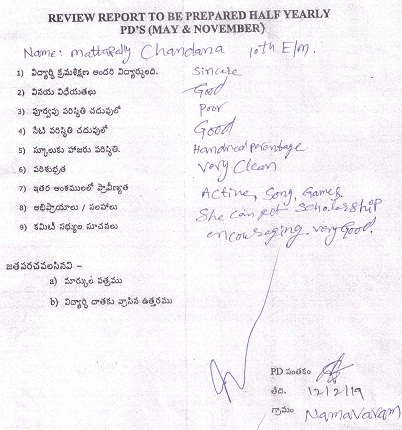 REVIEW REPORT TO BE PREPARED HALF YEARLY
PD'S (MAY & NOVEMBER)
Name: Mattapally Chandana 10th E/m.
1) విద్యార్థి క్రమశిక్షణ అందరి విద్యార్థులది. Sincere
2) వినయ విధేయతలు Good
3) పూర్వపు పరిస్థితి చదువులో Poor
4) నేటి పరిస్థితి చదువులో Good
5) స్కూలుకు హాజరు పరిస్థితి. Handred parentage
6) పరిశుభ్రత Very Clean
7) ఇతర అంశములలో ప్రావీణ్యత Active, Song, Games.
8) అభిప్రాయాలు / సలహాలు She can get scholership
9) కమిటీ సభ్యుల సూచనలు encouraging. Very Good.
జతపరచవలసినవి –
a) మార్కుల పత్రము
b) విద్యార్థి దాతకు వ్రాసిన ఉత్తరము
PD సంతకం
తేది. 12/2/19
గ్రామం Namavaram